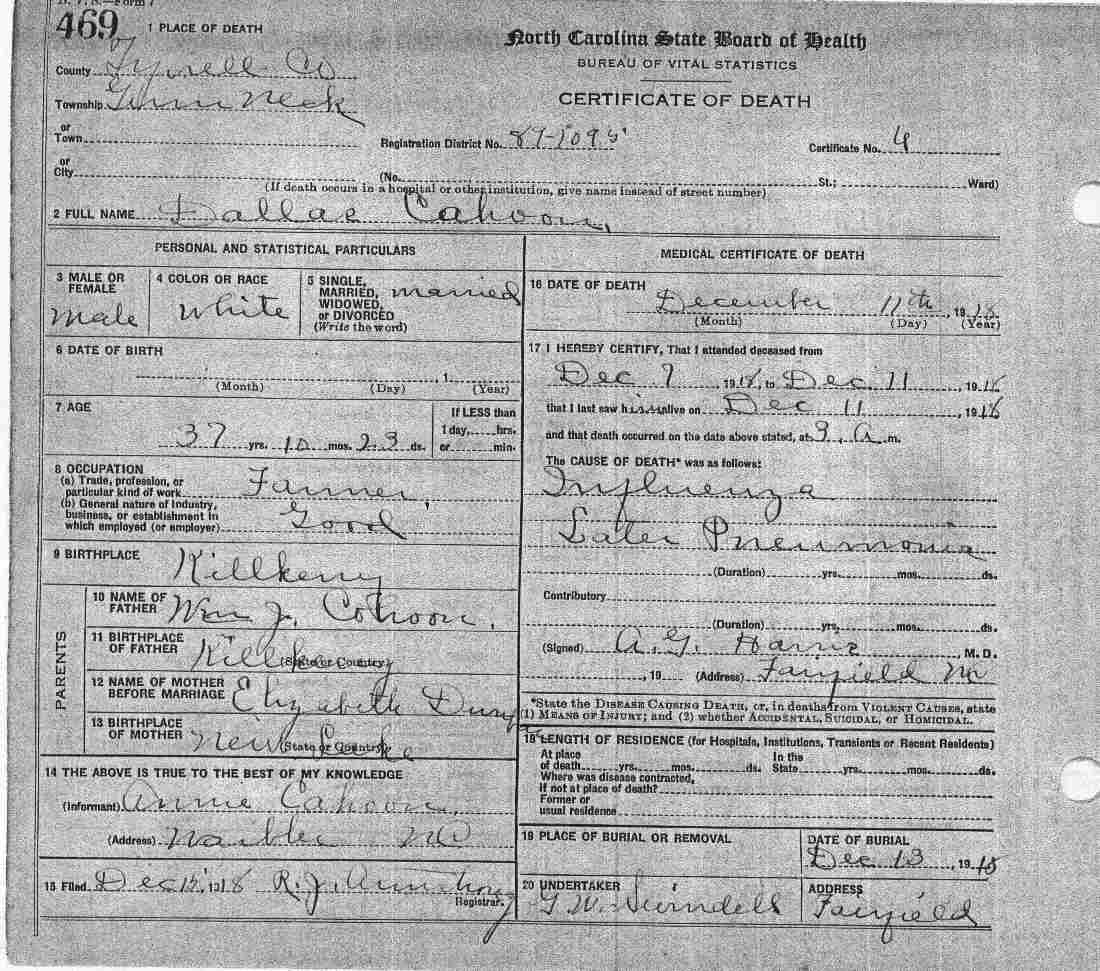 469
1 PLACE OF DEATH
North Carolina State Board of Health
BUREAU OF VITAL STATISTICS
CERTIFICATE OF DEATH
County Tyrrell Co
Township Gum Neck
or Town
Registration District No. 87-1095
Certificate No. 4
or City
(No. St.; Ward)
(If death occurs in a hospital or other institution, give name instead of street number)
2 FULL NAME Dallas Cahoon,
PERSONAL AND STATISTICAL PARTICULARS
3 MALE OR FEMALE Male
4 COLOR OR RACE White
5 SINGLE, MARRIED, WIDOWED, or DIVORCED (Write the word) married
6 DATE OF BIRTH
(Month) (Day) , 1 (Year)
7 AGE
37 yrs. 10 mos. 23 ds.
If LESS than
1 day, hrs.
or min.
8 OCCUPATION
(a) Trade, profession, or
particular kind of work Farmer
(b) General nature of industry,
business, or establishment in
which employed (or employer) Good
9 BIRTHPLACE Killkenny
PARENTS
10 NAME OF FATHER Wm J. Cohoon.
11 BIRTHPLACE OF FATHER (State or Country) Killkenny
12 NAME OF MOTHER BEFORE MARRIAGE Elizabeth
13 BIRTHPLACE OF MOTHER (State or Country) New
14 THE ABOVE IS TRUE TO THE BEST OF MY KNOWLEDGE
(Informant) Annie Cahoon,
(Address) NC
15 Filed Dec 15, 1918 R. J. Armstrong
Registrar
MEDICAL CERTIFICATE OF DEATH
16 DATE OF DEATH
December 11th , 1918
(Month) (Day) (Year)
17 I HEREBY CERTIFY, That I attended deceased from
Dec 7 , 1918, to Dec 11 1918
that I last saw him alive on Dec 11 1918
and that death occurred on the date above stated, at 9, a m.
The CAUSE OF DEATH* was as follows:
Influenza
Later Pneumonia
(Duration) yrs. mos. ds.
Contributory
(Duration) yrs. mos. ds.
(Signed) A. G. Harris , M. D.
, 19 (Address) Fairfield NC
*State the DISEASE CAUSING DEATH, or, in deaths from VIOLENT CAUSES, state
(1) MEANS OF INJURY; and (2) whether ACCIDENTAL, SUICIDAL, or HOMICIDAL.
18 LENGTH OF RESIDENCE (for Hospitals, Institutions, Transients or Recent Residents)
At place of death yrs. mos. ds. In the State yrs. mos. ds.
Where was disease contracted,
if not at place of death?
Former or
usual residence
19 PLACE OF BURIAL OR REMOVAL
DATE OF BURIAL
Dec 13 , 1918
20 UNDERTAKER
G. W. Swindell
ADDRESS
Fairfield